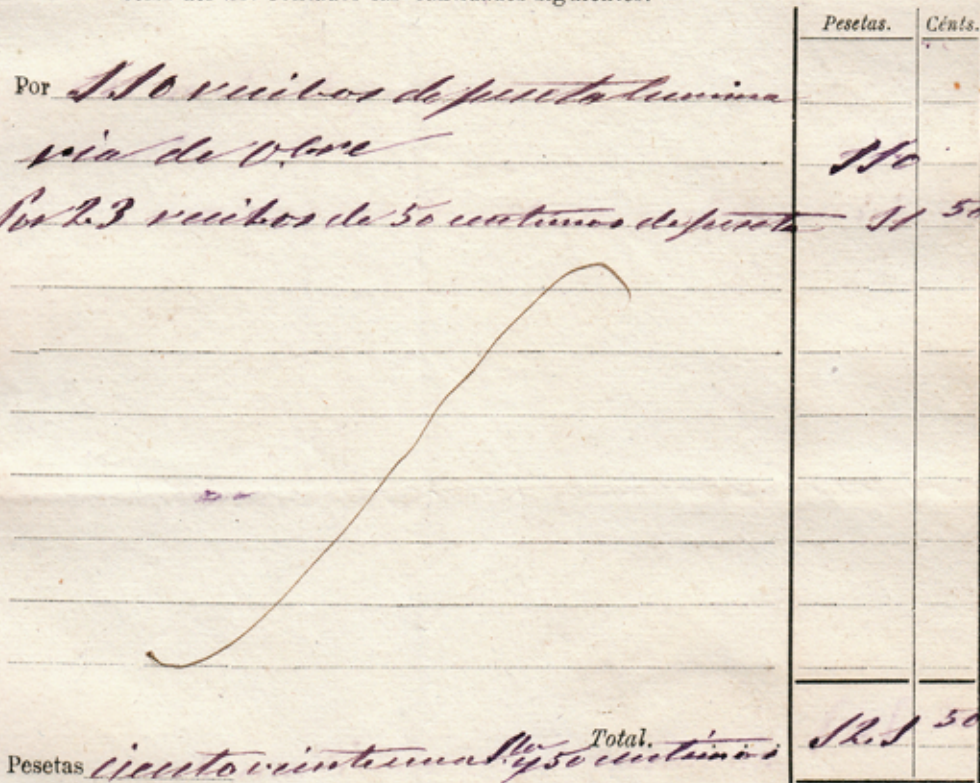 cantidades siguientes.
Pesetas. Cénts.
Por 110 recibos de peseta lumina
ria de Obre 110
Por 23 recibos de 50 centimos de peseta 11 50
Total. 121 50
Pesetas ciento veintiuna Ptas y 50 centimos